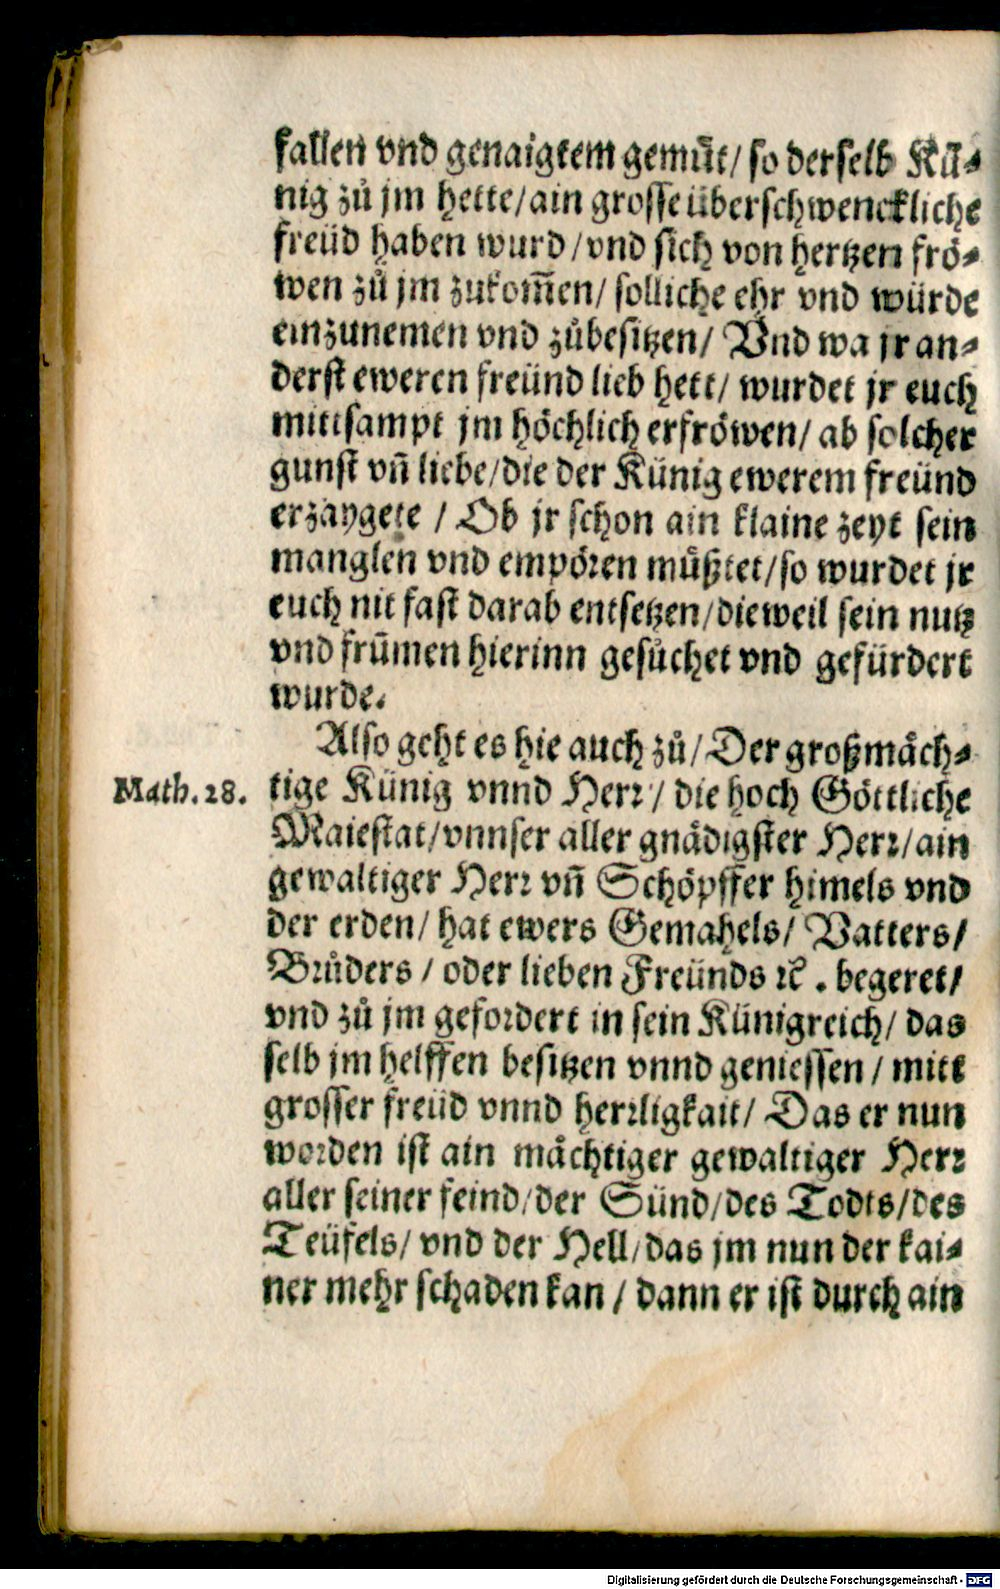 fallen vnd genaigtem gemuͤt/ so derselb Kü⸗
nig zuͦ jm hette/ ain grosse überschwenckliche
freüd haben wurd/ vnd sich von hertzen froͤ⸗
wen zuͦ jm zukom̃en/ solliche ehr vnd würde
einzunemen vnd zuͦbesitzen/ Vnd wa jr an⸗
derst eweren freünd lieb hett/ wurdet jr euch
mittsampt jm hoͤchlich erfroͤwen/ ab solcher
gunst vñ liebe/ die der Künig ewerem freünd
erzaygete / Ob jr schon ain klaine zeyt sein
manglen vnd empoͤren muͤßtet/ so wurdet jr
euch nit fast darab entsetzen/ dieweil sein nutz
vnd frum̃en hierinn gesuͦchet vnd gefürdert
wurde.
Also geht es hie auch zuͦ/ Der großmaͤch⸗
Math. 28.
tige Künig vnnd Herr/ die hoch Goͤttliche
Maiestat/ vnnser aller gnaͤdigster Herr/ ain
gewaltiger Herr vñ Schoͤpffer himels vnd
der erden/ hat ewers Gemahels/ Vatters/
Bruͦders / oder lieben Freünds ꝛc̃ . begeret/
vnd zuͦ jm gefordert in sein Künigreich/ das
selb jm helffen besitzen vnnd geniessen / mitt
grosser freüd vnnd herrligkait/ Das er nun
worden ist ain maͤchtiger gewaltiger Herr
aller seiner feind/ der Sünd/ des Todts/ des
Teüfels/ vnd der Hell/ das jm nun der kai⸗
ner mehr schaden kan / dann er ist durch ain
Digitalisierung gefördert durch die Deutsche Forschungsgemeinschaft - DFG